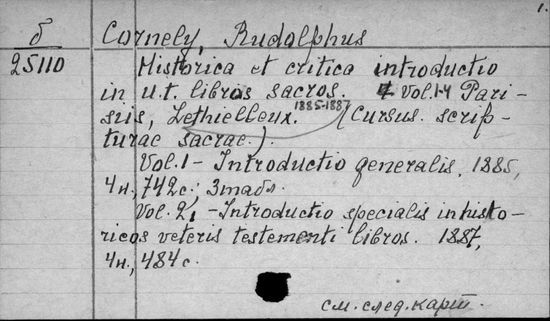 1.
б Cornely, Rudolphus
25110 Historica et critica introductio
in u.t. libros sacros. Vol.1-4 Pari-
siis, Lethielleux. 1885-1887 (Cursus scrip-
turae sacrae.).
Vol. 1 - Introductio generalis, 1885,
4н., 742с.; 3табл.
Vol. 2, - Introductio specialis in histo-
ricos veteris testementi libros. 1887,
4н., 484с.
см. след. карт.